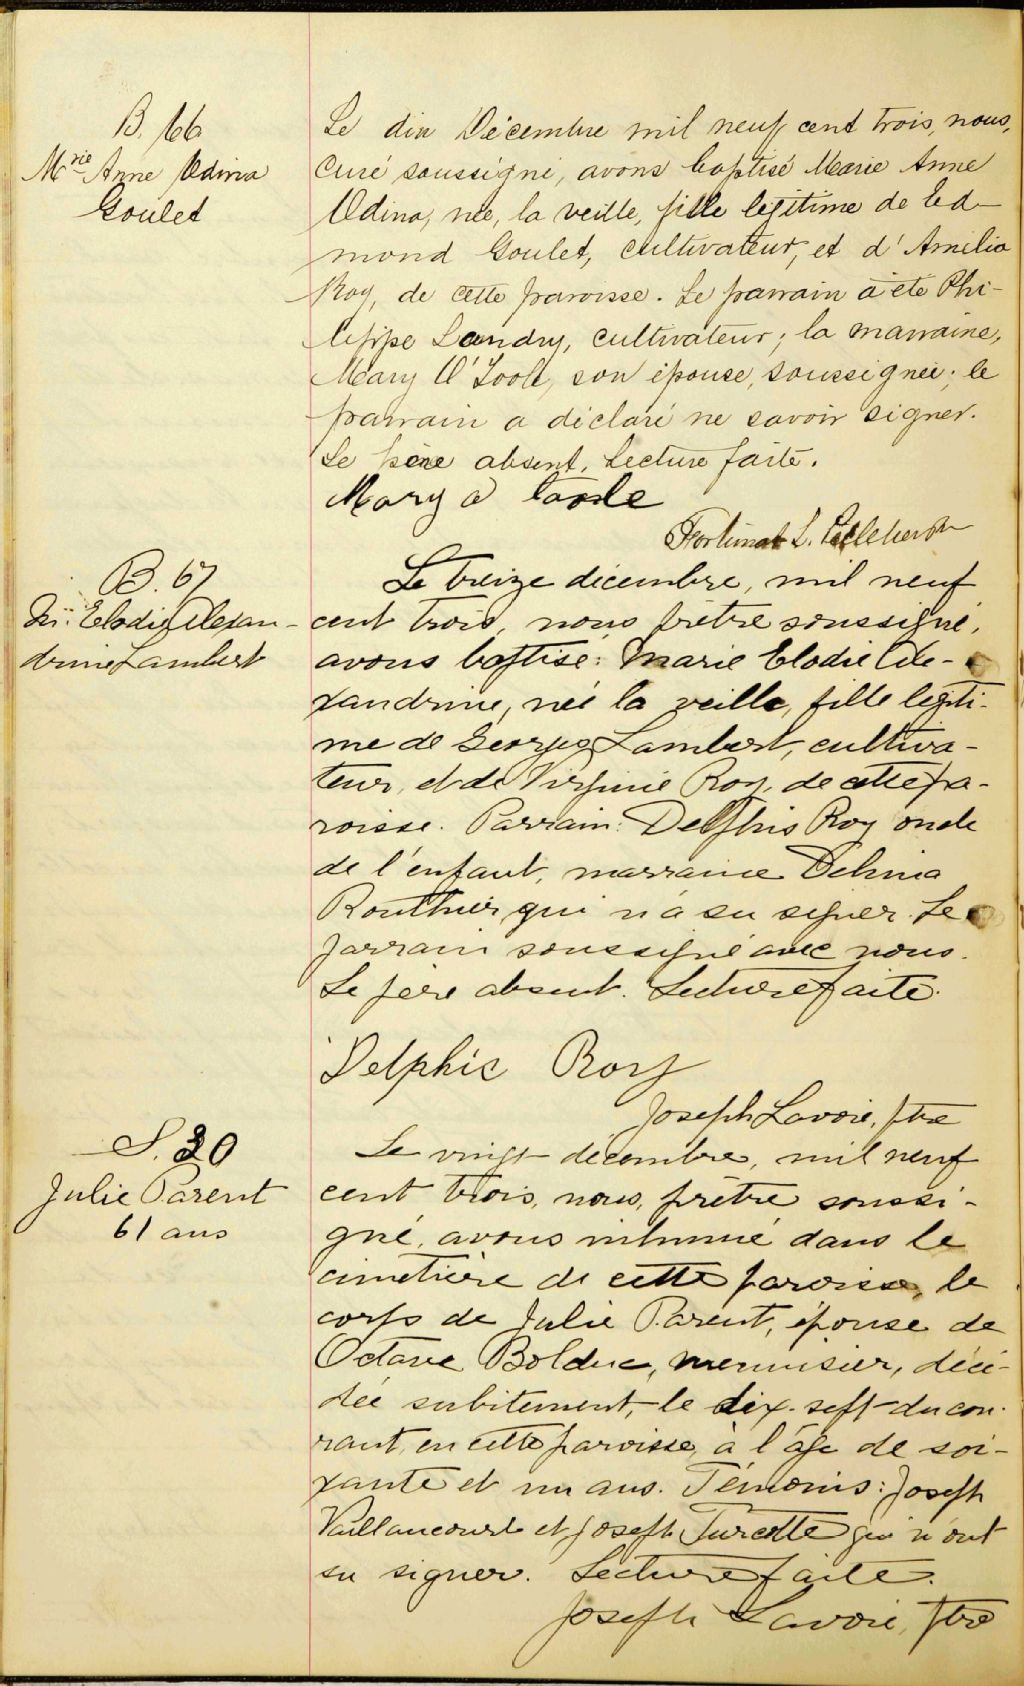 B. 66
Mrie Anne Odina
Goulet
Le dix Décembre mil neuf cent trois, nous,
curé soussigné, avons baptisé Marie Anne
Odina, née, la veille, fille légitime de Ed-
mond Goulet, cultivateur, et d'Amélia
Roy, de cette paroisse. Le parrain a été Phi-
lippe Landry, cultivateur; la marraine,
Mary O'Toole, son épouse, soussignée; le
parrain a déclaré ne savoir signer.
Le père absent. Lecture faite.
Mary O Toole
L. Pelletier Ptr
B. 67
M. Elodie Alexan-
drine Lambert
Le treize décembre, mil neuf
cent trois, nous prêtre soussigné,
avons baptisé: Marie Elodie Ale-
xandrine, née la veille, fille légiti-
me de Georges Lambert, cultiva-
teur, et de Virginie Roy, de cette pa-
roisse. Parrain: Delphis Roy oncle
de l'enfant, marraine Délima
Routhier, qui n'a su signer. Le
parrain soussigné avec nous.
Le père absent. Lecture faite.
Delphis Roy
Joseph Lavoie, ptre
S. 30
Julie Parent
61 ans
Le vingt décembre, mil neuf
cent trois, nous, prêtre soussi-
gné, avons inhumé dans le
cimetière de cette paroisse, le
corps de Julie Parent, épouse de
Octave Bolduc, menuisier, décé-
dée subitement, le dix-sept du cou-
rant, en cette paroisse, à l'âge de soi-
xante et un ans. Témoins: Joseph
Vaillancourt et Joseph Turcotte qui n'ont
su signer. Lecture faite.
Joseph Lavoie, ptre